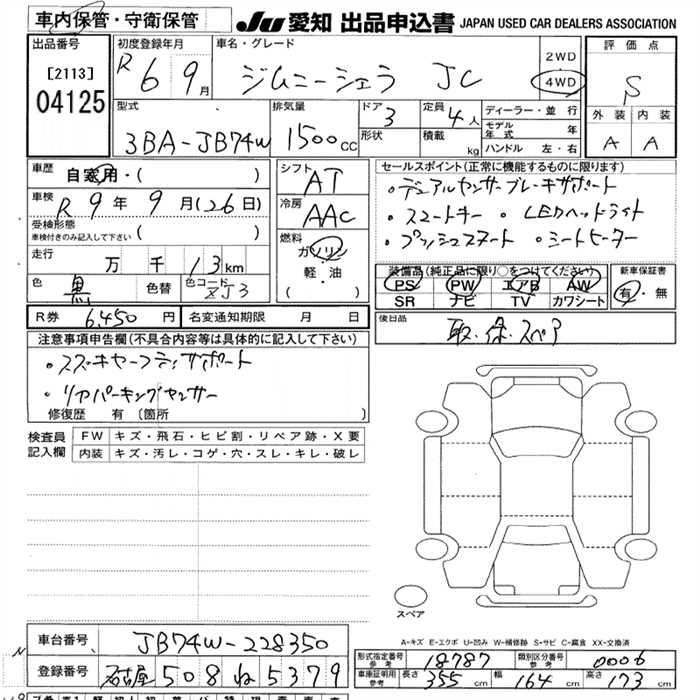 車内保管・守衛保管 JU 愛知 出品申込書 JAPAN USED CAR DEALERS ASSOCIATION
出品番号
[2113]
04125
初度登録年月 R 6 9月
車名・グレード ジムニーシエラ JC
2WD
4WD
評価点
S
外装 内装
A A
型式 3BA-JB74W
排気量 1500cc
ドア 3
形状
定員 4人
積載 kg
ディーラー・並行
モデル年式 年
ハンドル 左・右
車歴 自家用・( )
車検 R 9年 9月(26日)
受検形態
車検付きのみ記入して下さい ( )
走行 万 千 13km
色 黒 色替 色コード ZJ3
R券 6,450円 名変通知期限 月 日
シフト AT
冷房 AAC
燃料
ガソリン
・軽・油
( )
セールスポイント(正常に機能するものに限ります)
・デュアルセンサーブレーキサポート
・スマートキー ・LEDヘッドライト
・プッシュスタート ・シートヒーター
装備品(純正品に限り○をつけてください)
PS PW エアB AW
SR ナビ TV カワシート
新車保証書
有・無
後日品
取・保・スペア
注意事項申告欄(不具合内容等は具体的に記入して下さい)
・スズキセーフティサポート
・リアパーキングセンサー
修復歴 有(箇所
検査員記入欄
FW キズ・飛石・ヒビ割・リペア跡・X要
内装 キズ・汚レ・コゲ・穴・スレ・キレ・破レ
スペア
A-キズ E-エクボ U-凹み W-補修跡 S-サビ C-腐食 XX-交換済
車台番号 JB74W-228350
登録番号 名古屋 508 ね 5379
形式指定番号 参考 18787 類別区分番号 参考 0006
車庫証明用 参考 長さ 355cm 幅 164cm 高さ 173cm